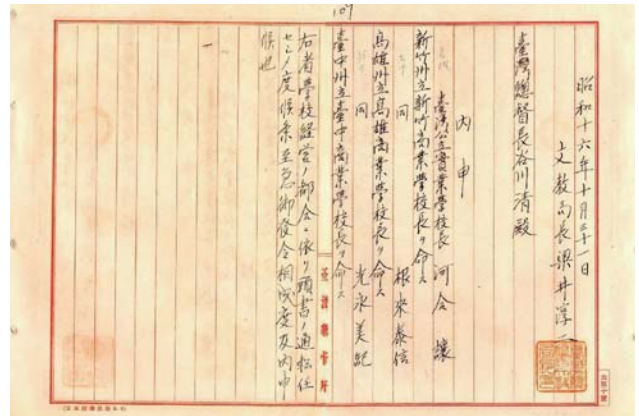 107
昭和十六年十月三十一日
文教局長梁井淳二
臺灣總督長谷川清殿
內申
臺灣公立實業學校長 河合讓
新竹州立新竹商業學校長ヲ命ス
同 根來泰信
高雄州立高雄商業學校長ヲ命ス
同 光永美記
臺中州立臺中商業學校長ヲ命ス
右者學校經營ノ都合ニ依リ頭書ノ通轉任
セシメ度候條至急御發令相成度及內申
候也
臺灣總督府